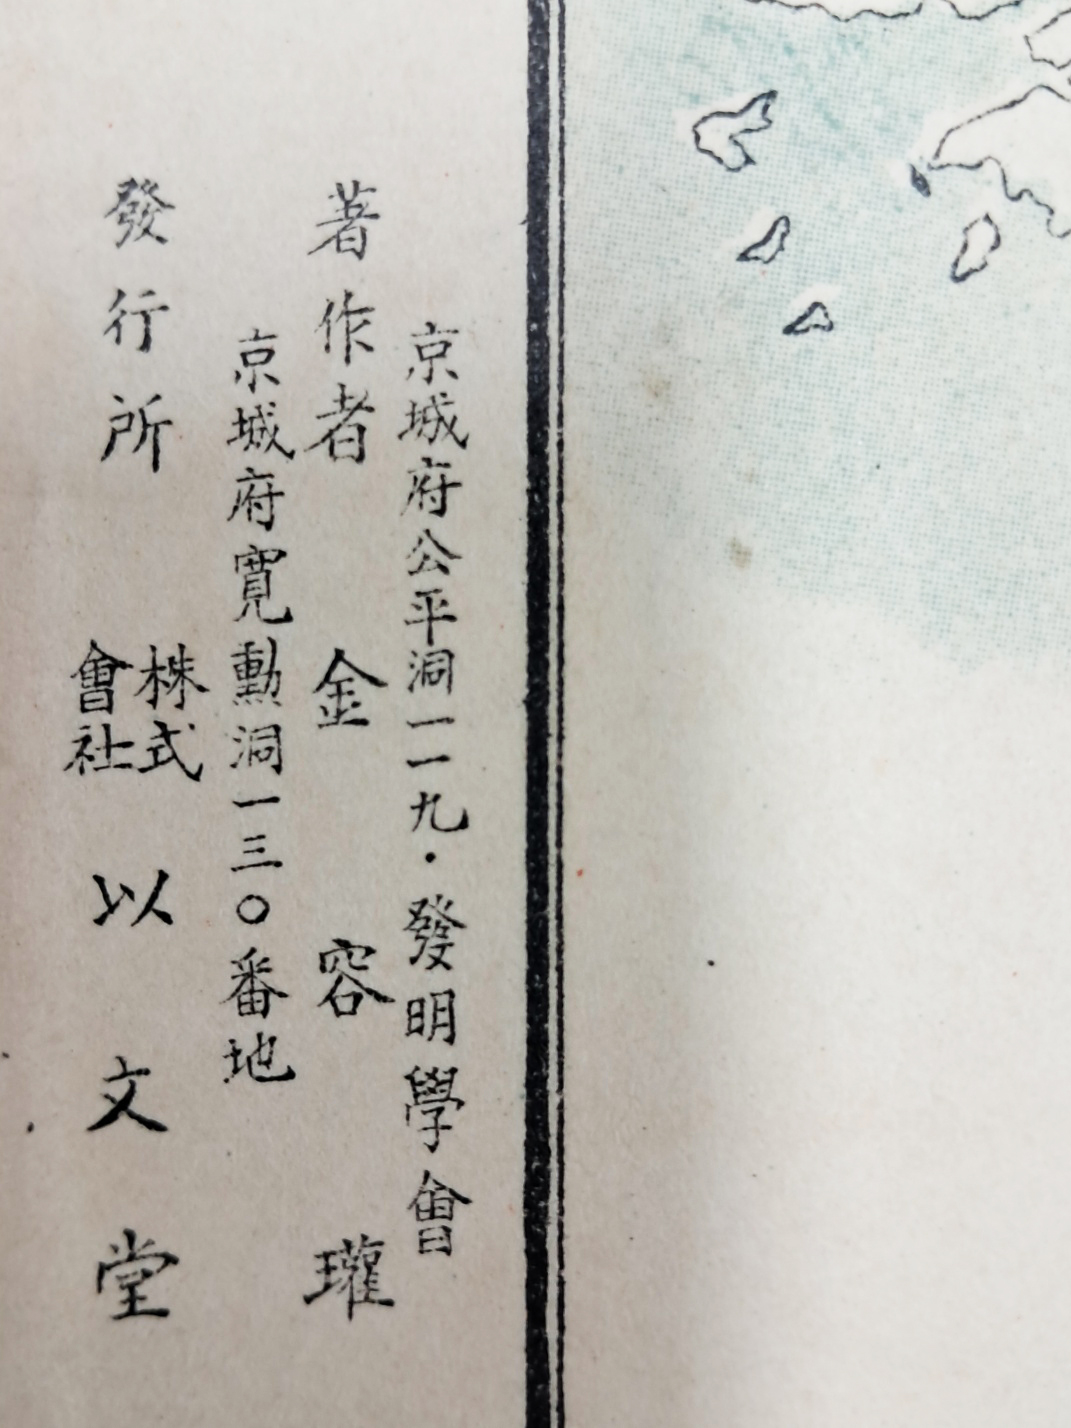 京城府公平洞一一九·發明學會
著作者 金容瓘
京城府寬勳洞一三〇番地
發行所 株式會社 以文堂